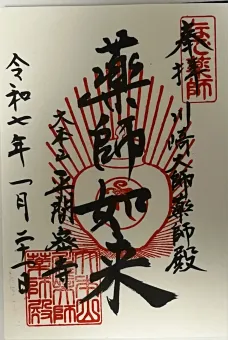 奉拝
川崎大師薬師殿
薬師如来
大本山 平間寺
令和七年一月二十日
薬師殿